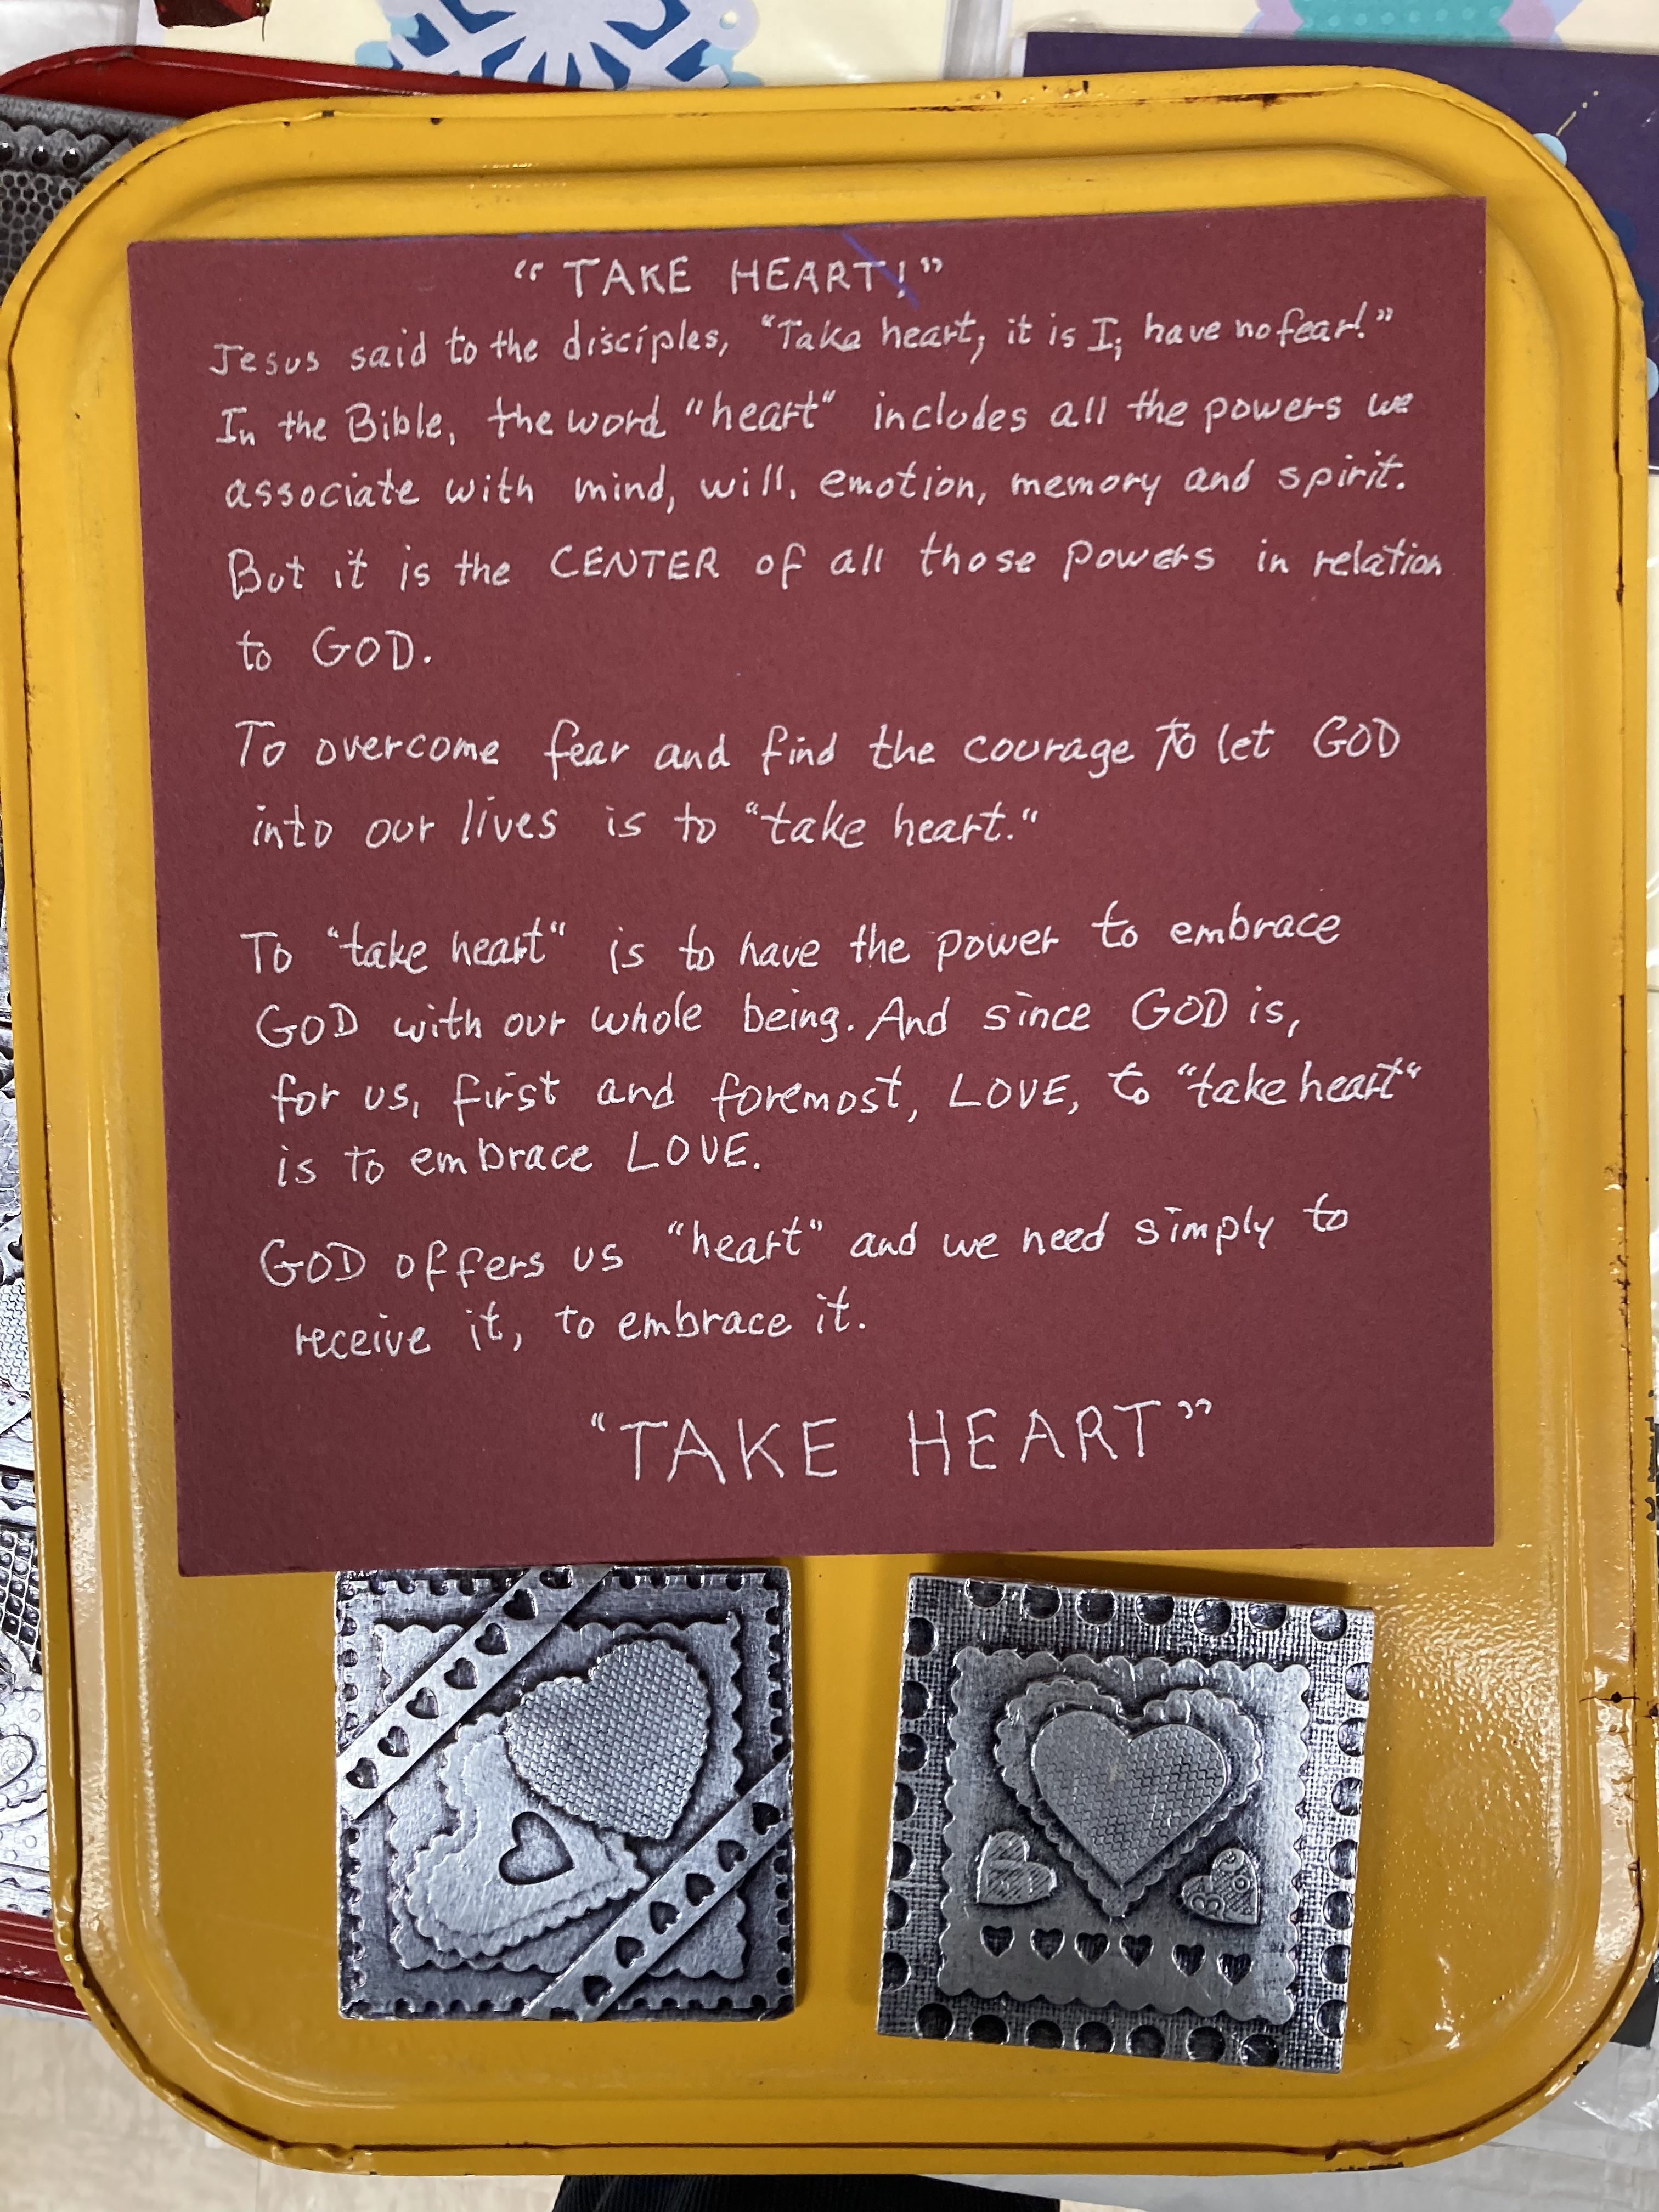 “TAKE HEART!”
Jesus said to the disciples, “Take heart, it is I; have no fear!”
In the Bible, the word "heart" includes all the powers we
associate with mind, will, emotion, memory and spirit.
But it is the CENTER of all those powers in relation
to GOD.
To overcome fear and find the courage to let GOD
into our lives is to “take heart."
To “take heart" is to have the power to embrace
GOD with our whole being. And since GOD is,
for us, first and foremost, LOVE, to “take heart"
is to embrace LOVE.
GOD offers us “heart" and we need simply to
receive it, to embrace it.
“TAKE HEART”